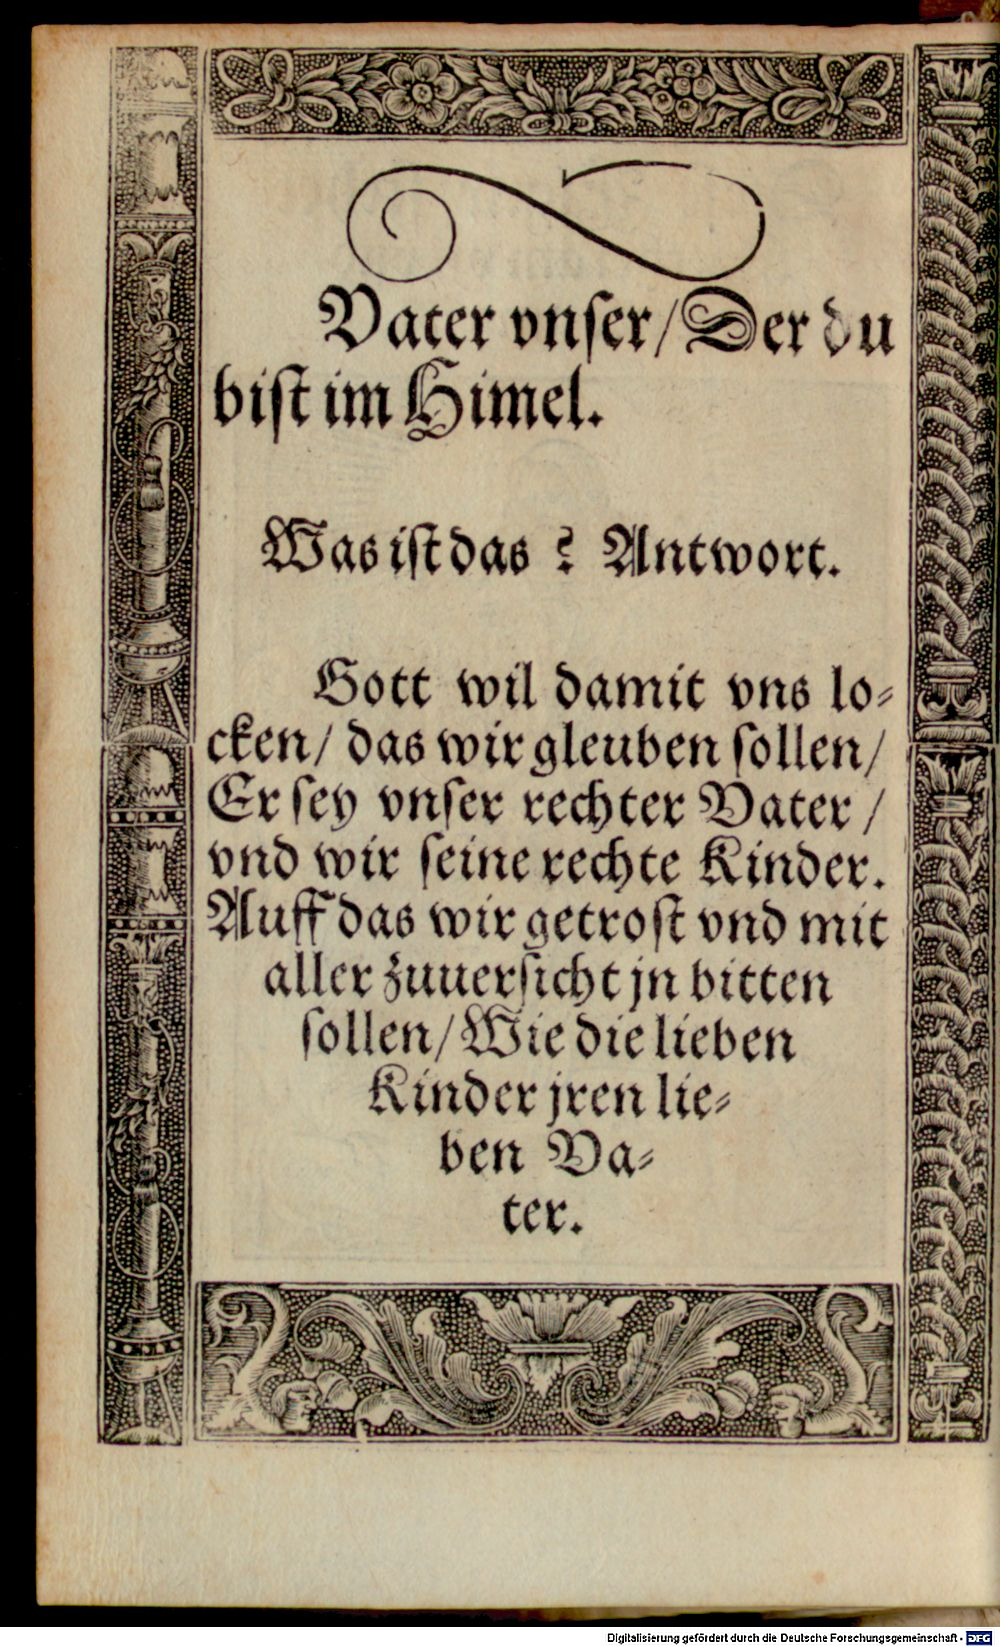 Vater vnſer/ Der du
biſt im Himel.
Was iſt das ? Antwort.
Gott wil damit vns lo⸗
cken/ das wir gleuben ſollen/
Er ſey vnſer rechter Vater /
vnd wir ſeine rechte Kinder.
Auff das wir getroſt vnd mit
aller zuuerſicht jn bitten
ſollen/ Wie die lieben
Kinder jren lie⸗
ben Va⸗
ter.
Digitalisierung gefördert durch die Deutsche Forschungsgemeinschaft - DFG